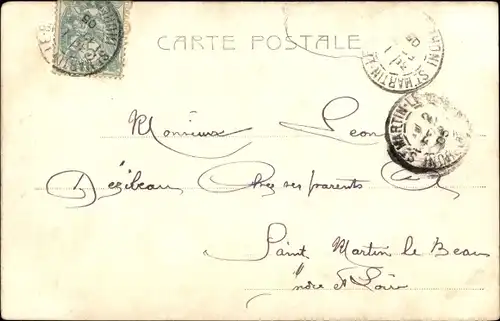 CARTE POSTALE
Monsieux Leon
Dézibeau Chez ses parents A
Saint Martin le Beau
Indre et Loire
ST MARTIN-LE
ST MARTIN-LE